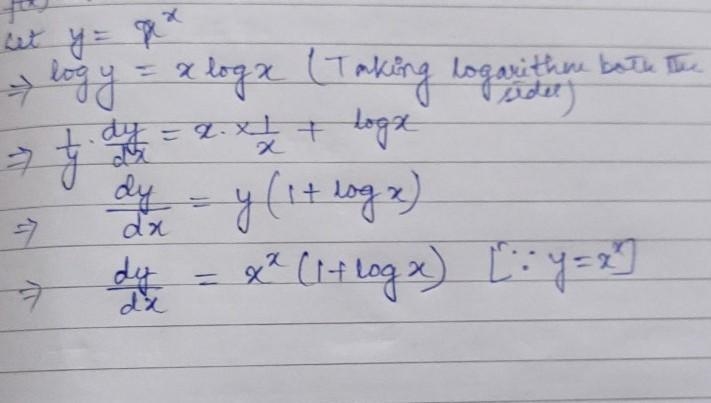 f(x)
Let y = x^x
⇒ log y = x log x (Taking logarithm both the sides)
⇒ 1/y · dy/dx = x · × 1/x + log x
⇒ dy/dx = y(1 + log x)
⇒ dy/dx = x^x (1 + log x) [∵ y = x^x]